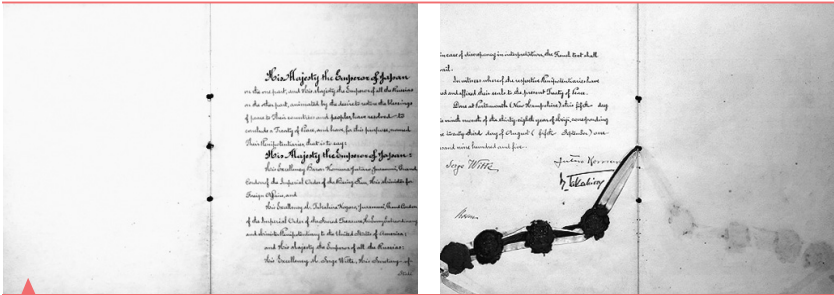 His Majesty the Emperor of Japan
on the one part, and His Majesty the Emperor of all the Russias
on the other part, animated by the desire to restore the blessings
of peace to Their countries and peoples, have resolved to
conclude a Treaty of Peace, and have, for this purpose, named
Their Plenipotentiaries, that is to say:
His Majesty the Emperor of Japan:
His Excellency Baron Komura Jutaro, Jusammi, Grand
Cordon of the Imperial Order of the Rising Sun, His Minister for
Foreign Affairs, and
His Excellency M. Takahira Kogoro, Jusammi, Grand Cordon
of the Imperial Order of the Sacred Treasure, His Envoy Extraordinary
and Minister Plenipotentiary to the United States of America;
and His Majesty the Emperor of all the Russias:
His Excellency M. Serge Witte, His Secretary of
State
in case of discrepancy in interpretation, the French text shall
In witness whereof the respective Plenipotentiaries have
ed and affixed their seals to the present Treaty of Peace.
Done at Portsmouth (New Hampshire) this fifth day
ninth month of the thirty eighth year of Meiji, corresponding
twenty third day of August (fifth September) one
nine hundred and five.
Serge Witte
Jutaro Komura
K. Takahira
Rosen